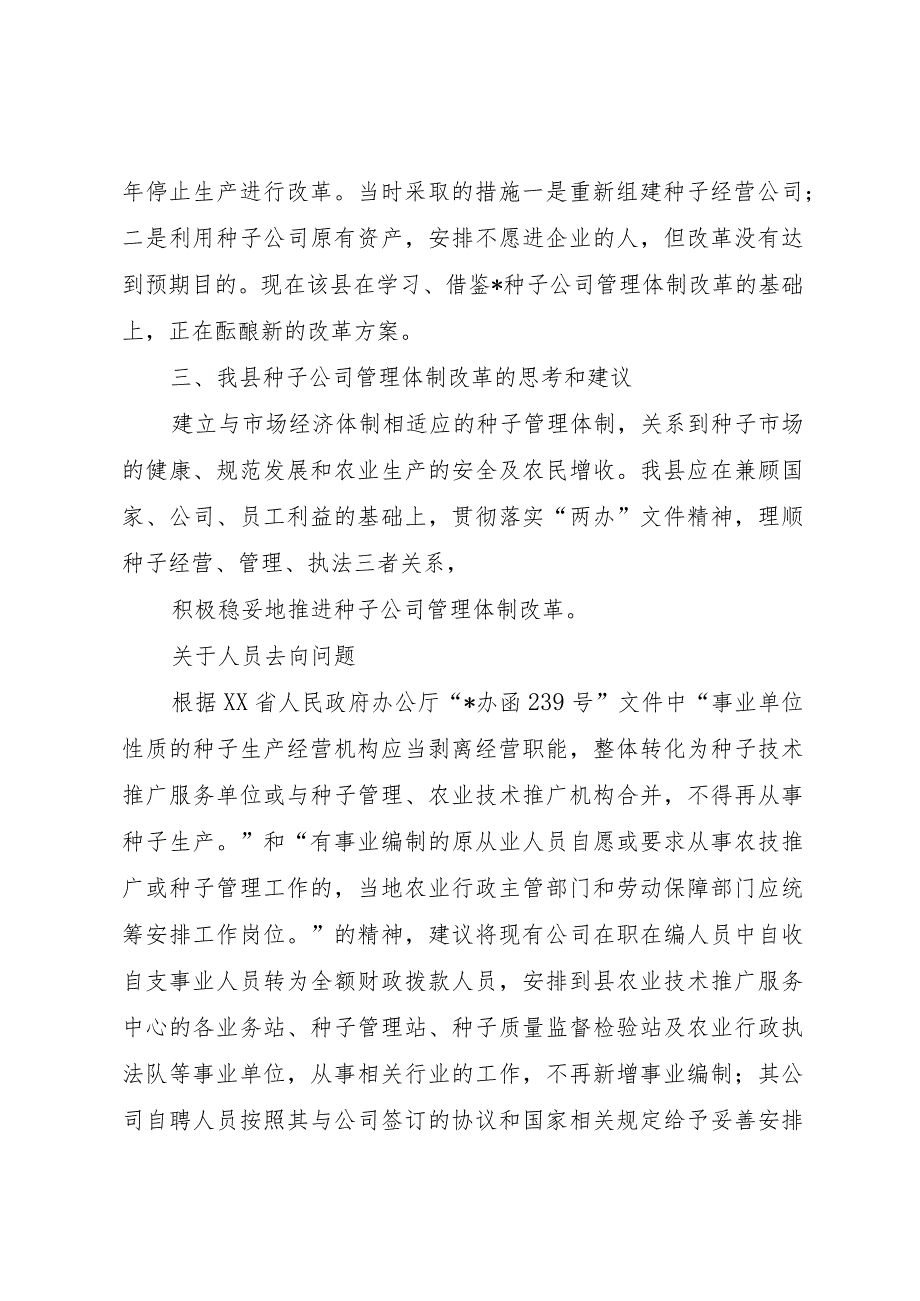 年停止生产进行改革。当时采取的措施一是重新组建种子经营公司；
二是利用种子公司原有资产，安排不愿进企业的人，但改革没有达
到预期目的。现在该县在学习、借鉴*种子公司管理体制改革的基础
上，正在酝酿新的改革方案。
三、我县种子公司管理体制改革的思考和建议
建立与市场经济体制相适应的种子管理体制，关系到种子市场
的健康、规范发展和农业生产的安全及农民增收。我县应在兼顾国
家、公司、员工利益的基础上，贯彻落实“两办”文件精神，理顺
种子经营、管理、执法三者关系，
积极稳妥地推进种子公司管理体制改革。
关于人员去向问题
根据XX省人民政府办公厅“*办函239号”文件中“事业单位
性质的种子生产经营机构应当剥离经营职能，整体转化为种子技术
推广服务单位或与种子管理、农业技术推广机构合并，不得再从事
种子生产。”和“有事业编制的原从业人员自愿或要求从事农技推
广或种子管理工作的，当地农业行政主管部门和劳动保障部门应统
筹安排工作岗位。”的精神，建议将现有公司在职在编人员中自收
自支事业人员转为全额财政拨款人员，安排到县农业技术推广服务
中心的各业务站、种子管理站、种子质量监督检验站及农业行政执
法队等事业单位，从事相关行业的工作，不再新增事业编制；其公
司自聘人员按照其与公司签订的协议和国家相关规定给予妥善安排